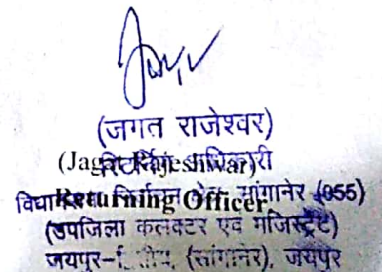 (जगत राजेश्वर)
(Jagat Rajeshwar)
रिटर्निंग अधिकारी
Returning Officer
विधानसभा निर्वाचन क्षेत्र सांगानेर (055)
(उपजिला कलक्टर एवं मजिस्ट्रेट)
जयपुर- (सांगानेर), जयपुर